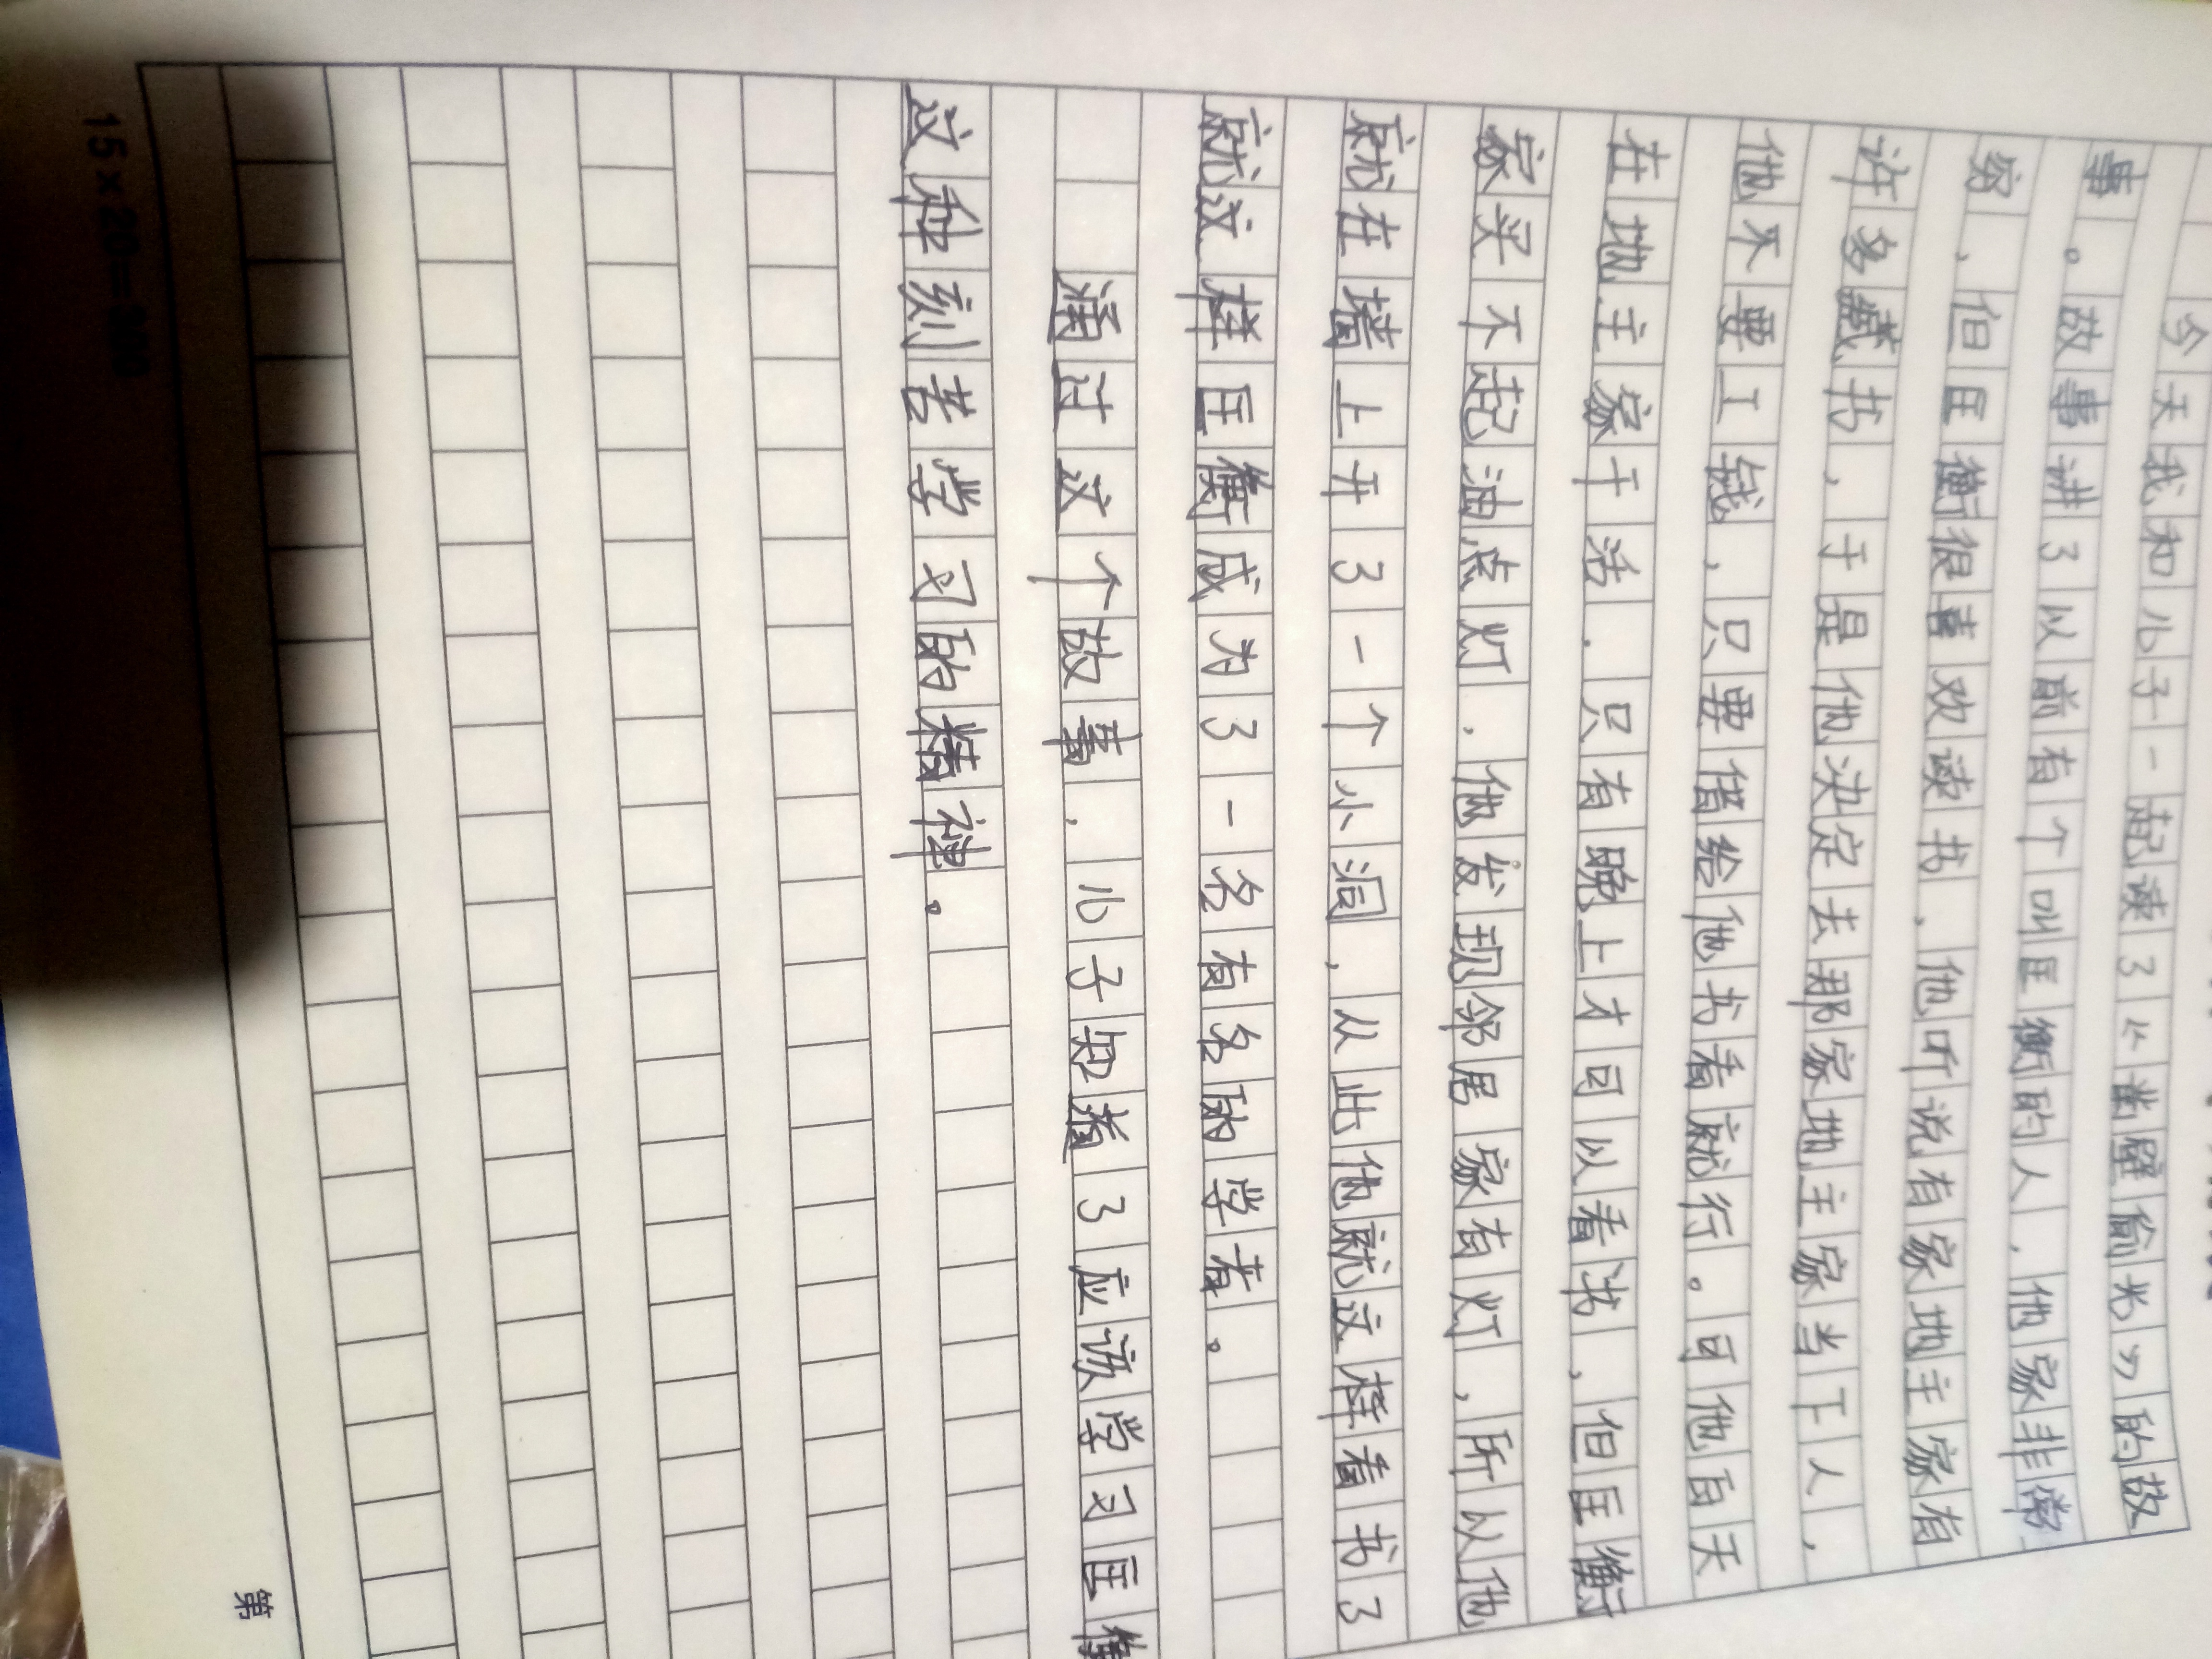 今天我和儿子一起读了《凿壁偷光》的故
事。故事讲了以前有个叫匡衡的人，他家非常
穷，但匡衡很喜欢读书，他听说有家地主家有
许多藏书，于是他决定去那家地主家当下人，
他不要工钱，只要借给他书看就行。可他白天
在地主家干活，只有晚上才可以看书，但匡衡
家买不起油点灯，他发现邻居家有灯，所以他
就在墙上开了一个小洞，从此他就这样看书了
就这样匡衡成为了一名有名的学者。
通过这个故事，儿子知道了应该学习匡衡
这种刻苦学习的精神。
15×20=300
第